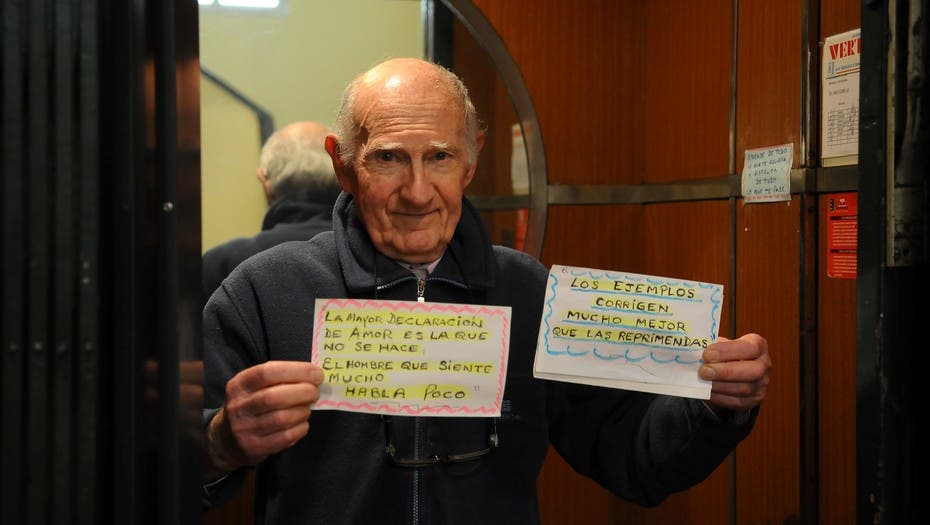 LA MAYOR DECLARACIÓN
DE AMOR ES LA QUE
NO SE HACE.
EL HOMBRE QUE SIENTE
MUCHO
HABLA POCO "
" LOS EJEMPLOS
CORRIGEN
MUCHO MEJOR
QUE LAS REPRIMENDAS
DE TODO
LO QUE TE PASE
VERT